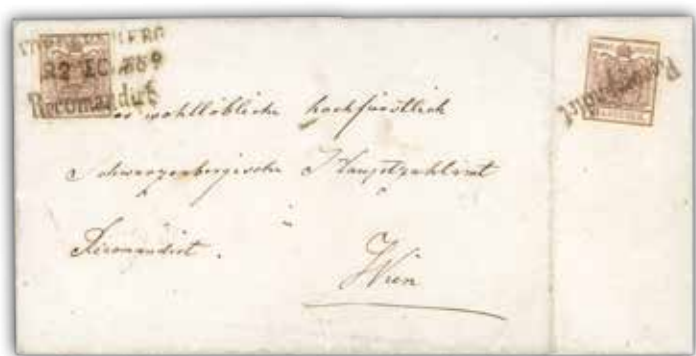 Recomandirt
Recomandirt
wohllöbliche hochfürstlich
Schwarzenbergische Hauptzahlamt
Recomandirt.
Wien